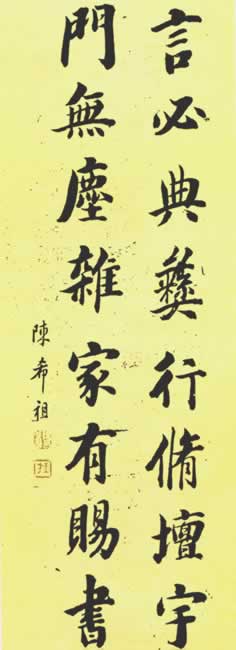 言必典彝行脩壇宇
門無塵雜家有賜書
陳希祖